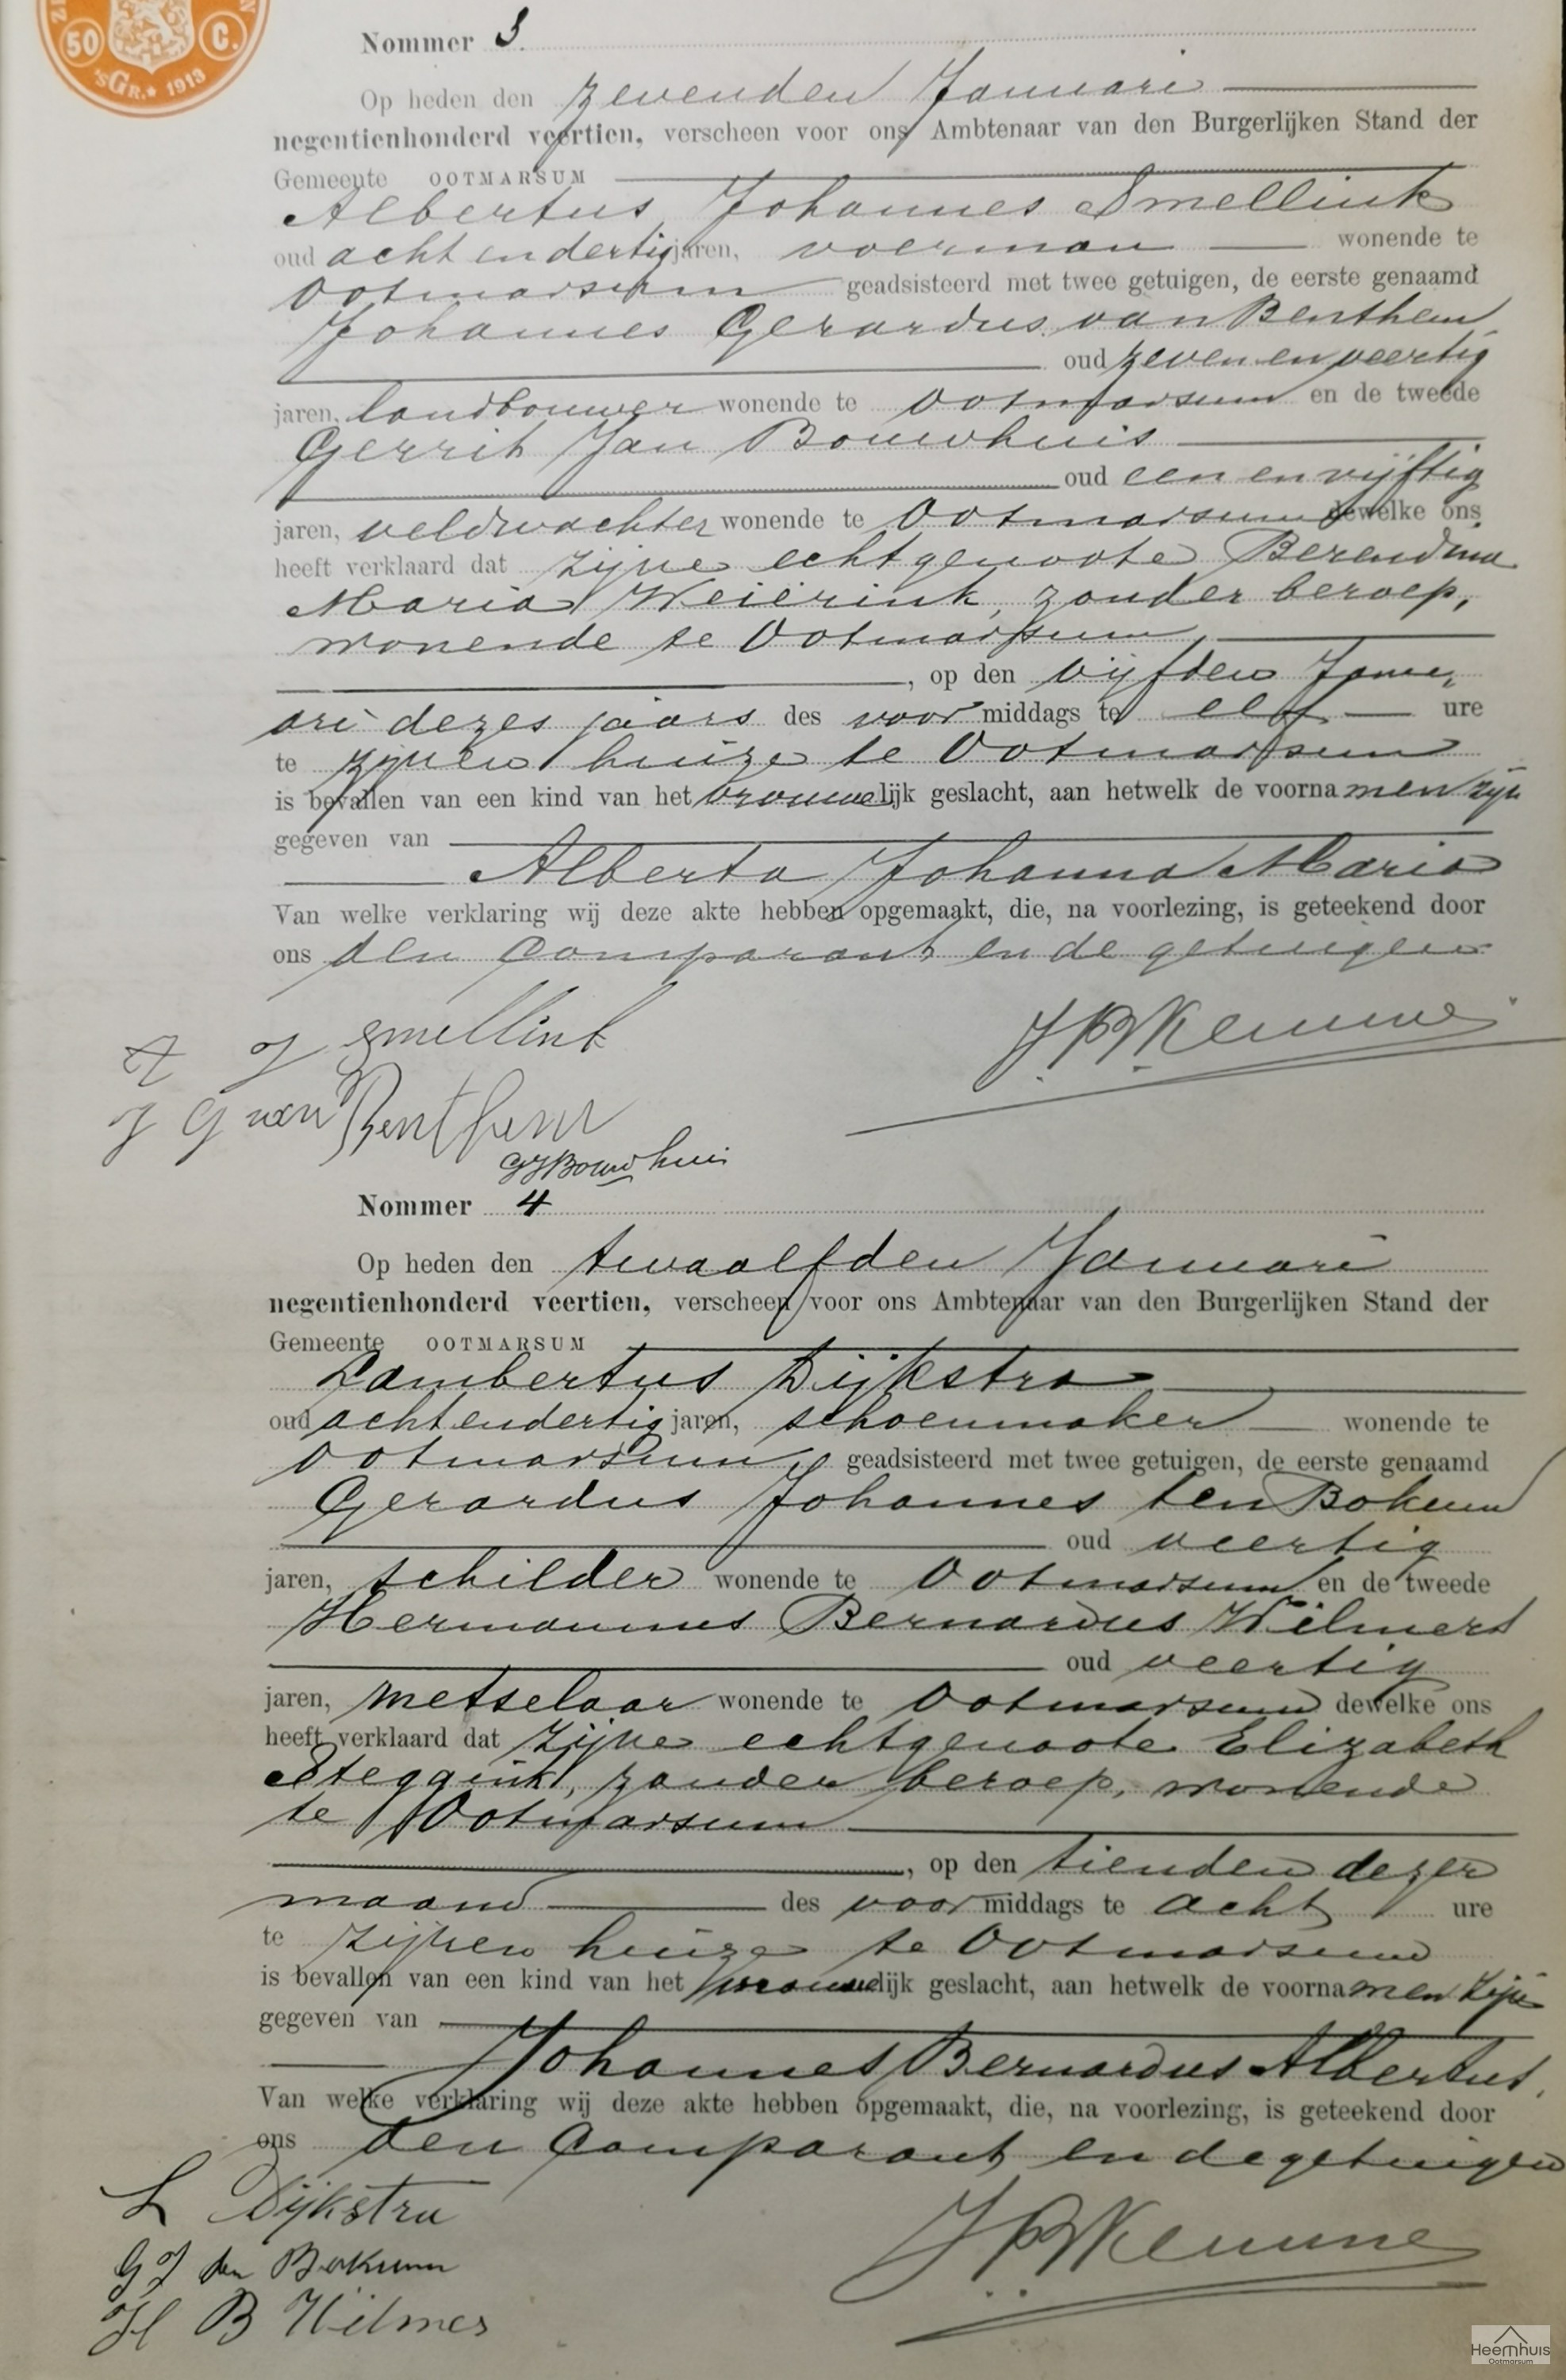 50 C.
'sGr.* 1913
Nommer 3.
Op heden den zevenden Januari
negentienhonderd veertien, verscheen voor ons Ambtenaar van den Burgerlijken Stand der
Gemeente OOTMARSUM
Albertus Johannes Smellink
oud acht en dertig jaren, voerman wonende te
Ootmarsum geadsisteerd met twee getuigen, de eerste genaamd
Johannes Gerardus van Benthem
oud zeven en veertig
jaren, landbouwer wonende te Ootmarsum en de tweede
Gerrit Jan Bouwhuis
oud een en vijftig
jaren, veldwachter wonende te Ootmarsum dewelke ons
heeft verklaard dat zijne echtgenoote Berendina
Maria Weierink, zonder beroep,
wonende te Ootmarsum,
, op den vijfden Janu-
ari dezes jaars des voor middags te elf ure
te zijnen huize te Ootmarsum
is bevallen van een kind van het vrouwelijk geslacht, aan hetwelk de voornamen zijn
gegeven van
Alberta Johanna Maria
Van welke verklaring wij deze akte hebben opgemaakt, die, na voorlezing, is geteekend door
ons den comparant en de getuigen
A J Smellink
JPKemme
J G van Benthem
GJBouwhuis
Nommer 4
Op heden den twaalfden Januari
negentienhonderd veertien, verscheen voor ons Ambtenaar van den Burgerlijken Stand der
Gemeente OOTMARSUM
Lambertus Dijkstra
oud achtendertig jaren, schoenmaker wonende te
Ootmarsum, geadsisteerd met twee getuigen, de eerste genaamd
Gerardus Johannes ten Bokum
oud veertig
jaren, schilder wonende te Ootmarsum en de tweede
Hermannus Bernardus Wilmers
oud veertig
jaren, metselaar wonende te Ootmarsum dewelke ons
heeft verklaard dat zijne echtgenoote Elizabeth
Steggink, zonder beroep, wonende
te Ootmarsum
, op den tienden dezer
maand des voor middags te acht ure
te zijnen huize te Ootmarsum
is bevallen van een kind van het lijk geslacht, aan hetwelk de voornamen zijn
gegeven van
Johannes Bernardus Albertus.
Van welke verklaring wij deze akte hebben opgemaakt, die, na voorlezing, is geteekend door
ons den comparant en de getuigen
L Dijkstra
JPKemme
G J ten Bokum
H B Wilmes
Heemhuis
Ootmarsum